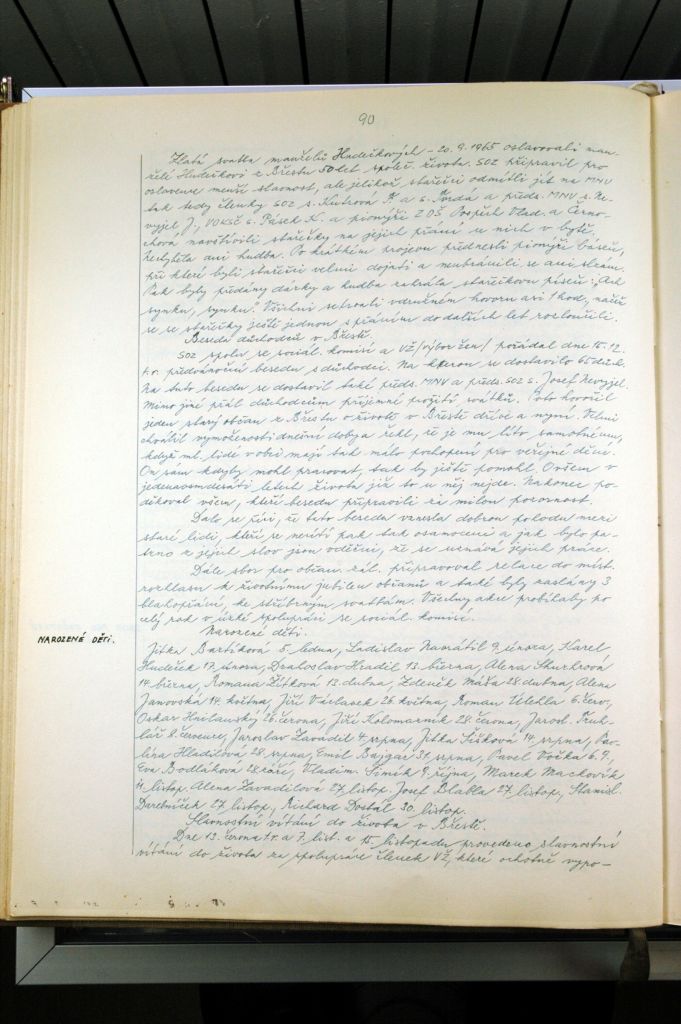 90
Zlatá svatba manželů Hudečkových - 20.9.1965 oslavovali man-
želé Hudečkovi z Břestu 50 let společ. života. SOZ připravil pro
oslavence menší slavnost, ale jelikož stařečci odmítli jít na MNV
tak tedy členky SOZ s. Kutrová F. a s. a předs. MNV s. Ne-
vyjel J., VOKSČ s. Pásek K. a pionýři ZDŠ Pospěch Vlad. a Černo-
chová navštívili stařečky na jejich přání se nich v bytě.
Nechyběla ani hudba. Po krátkém projevu přednesli pionýři báseň,
při které byli stařečci velmi dojati a neubránili se ani slzám.
Pak byly předány dárky a hudba zahrála stařečkovu píseň: "Ach
synku, synku". Všichni setrvali v družném hovoru asi 1 hod, načež
se se stařečky ještě jednou s přáním do dalších let rozloučili.
Beseda důchodců v Břestě.
SOZ spolu se sociál. komisí a VŽ /výbor žen/ pořádal dne 15.12.
t.r. předvánoční besedu s důchodci. Na kterou se dostavilo 65 důch.
Na tuto besedu se dostavil také předs. MNV a předs. SOZ s. Josef Nevyjel.
Mimo jiné přál důchodcům příjemné prožití svátků. Poto hovořil
jeden starý občan z Břestu o životě v Břestě dříve a nyní. Velmi
chválil vymoženosti dnešní doby a řekl, že je mu líto samotnému,
když ml. lidé v obci mají tak málo pochopení pro veřejné dění.
On sám kdyby mohl pracovat, tak by jistě pomohl. Ovšem v
jedenaosmdesáti letech života již to u něj nejde. Nakonec po-
děkoval všem, kteří besedu připravili za milou pozornost.
Dalo se říci, že tato beseda vnesla dobrou pohodu mezi
staré lidi, kteří se necítí pak tak osamoceni a jak bylo pa-
trno z jejich slov jsou vděčni, že se uznává jejich práce.
Dále sbor pro občan. zál. připravoval relace do míst.
rozhlasu k životnímu jubileu občanů a také byly zaslány 3
blahopřání, ke stříbrným svatbám. Všechny akce probíhaly po
celý rok v úzké spolupráci se sociál. komisí.
NAROZENÉ DĚTI.
Narozené děti.
Jitka Bartíková 5. ledna, Ladislav Navrátil 9. února, Karel
Hudeček 17. února, Drahoslav Hradil 13. března, Alena
14. března, Romana Žítková 13. dubna, Zdeněk Máša 28. dubna, Alena
Janovská 14. května, Jiří Václavek 26. května, Roman Velehla 6. červ.,
Oskar Hnilanský 26. června, Jiří Kolomazník 28. června, Jarosl. Truh-
lář 8. července, Jaroslav Zavadil 4. srpna, Jitka Šišková 14. srpna, Pav-
lína Hladilová 28. srpna, Emil Bajgar 31. srpna, Pavel Vočka 6.9.,
Eva Bodláková 28. září, Vladim. Šimík 9. října, Marek Mackovík
11. listop. Alena Zavadilová 27. listop. Josef Blabla 27. listop., Stanisl.
Darebníček 27. listop., Richard Dostál 30. listop.
Slavnostní vítání do života v Břestě.
Dne 13. června t.r. a 7. list. a 15. listopadu provedeno slavnostní
vítání do života za spolupráce členek VŽ, které ochotně vypo-